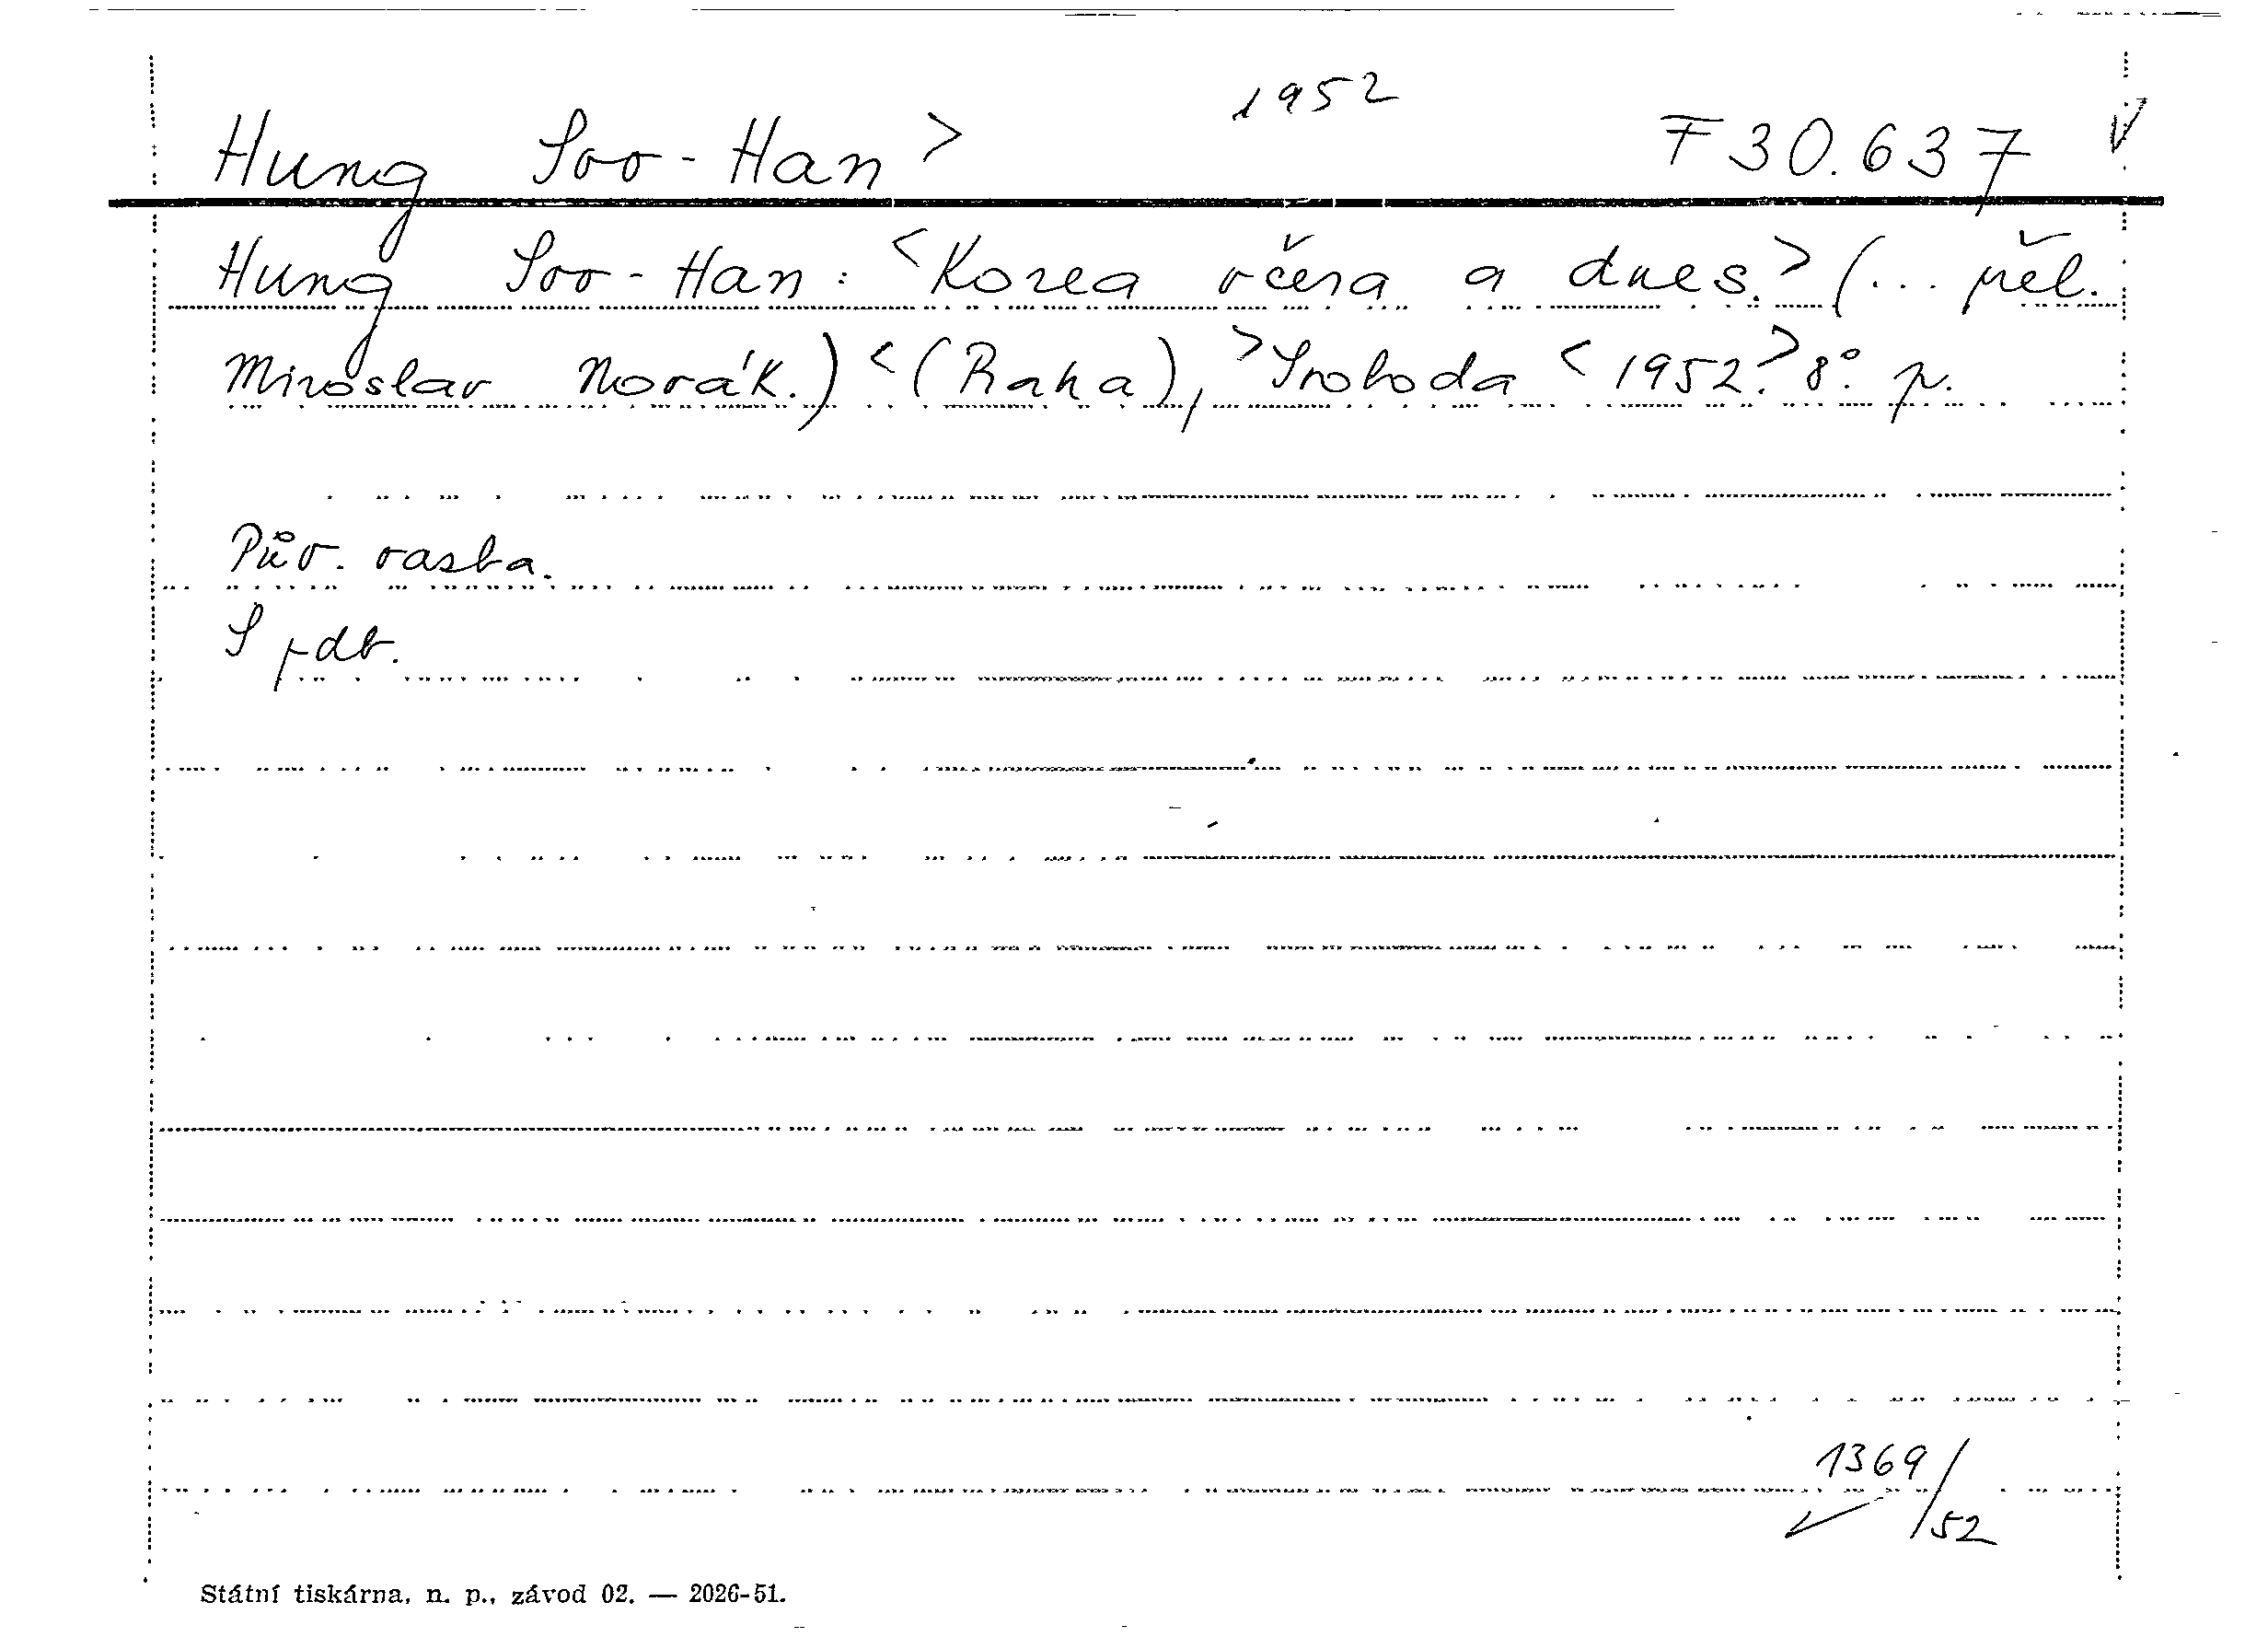 1952
Hung Soo-Han> F 30.637
Hung Soo-Han: <Korea včera a dnes.> (... přel.
Miroslav Novák.) <(Praha), >Svoboda <1952.> 8° p.
Pův. vazba.
S pdt.
1369/52
Státní tiskárna, n. p., závod 02. — 2026-51.